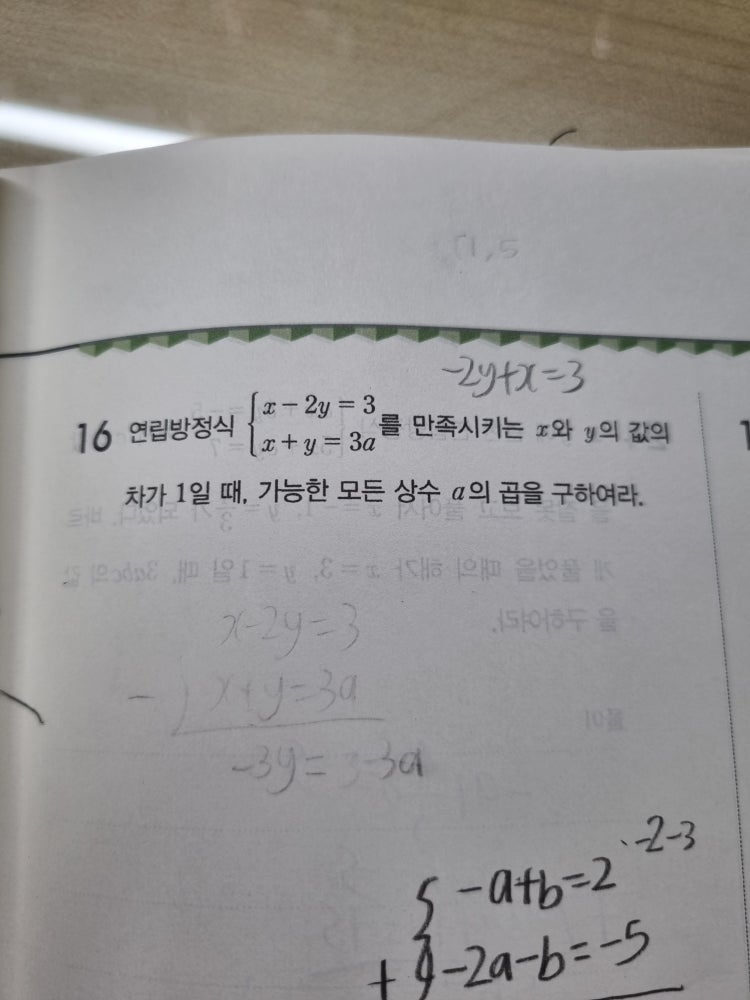 -2y+x=3
16 연립방정식 { x - 2y = 3
x + y = 3a 를 만족시키는 x와 y의 값의
차가 1일 때, 가능한 모든 상수 a의 곱을 구하여라.
x-2y=3
- ) x+y=3a
-3y= 3-3a
-2-3
-a+b=2
+ -2a-b=-5